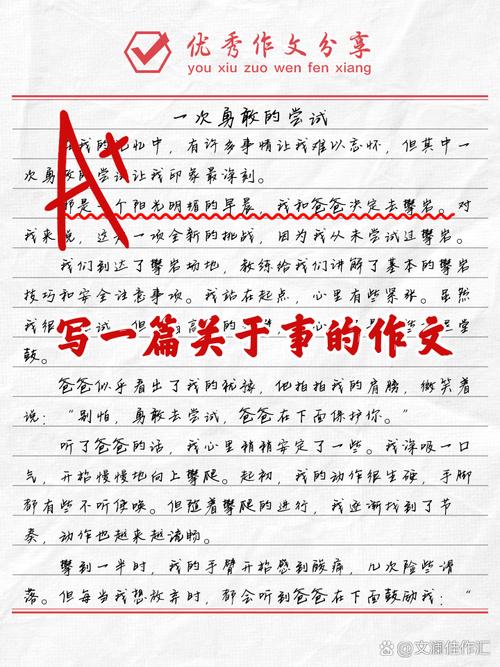 优秀作文分享
you xiu zuo wen fen xiang
一次勇敢的尝试
我的记忆中，有许多事情让我难以忘怀，但其中一
次勇敢的尝试让我印象最深刻。
A+
那是一个阳光明媚的早晨，我和爸爸决定去攀岩。对
我来说，这是一项全新的挑战，因为我从未尝试过攀岩。
我们到达了攀岩场地，教练给我们讲解了基本的攀岩
技巧和安全注意事项。我站在起点，心里有些紧张。虽然
我很 试，但
写一篇关于事的作文
鼓。
爸爸似乎看出了我的忧虑，他拍拍我的肩膀，微笑着
说：“别怕，勇敢去尝试，爸爸在下面保护你。”
听了爸爸的话，我心里稍稍安定了一些。我深吸一口
气，开始慢慢地向上攀爬。起初，我的动作很生硬，手脚
都有些不听使唤。但随着攀爬的进行，我逐渐找到了节
奏，动作也越来越流畅。
攀到一半时，我的手臂开始感到酸痛，几次险些滑
落。但每当我想放弃时，都会听到爸爸在下面鼓励我：“
文澜佳作汇